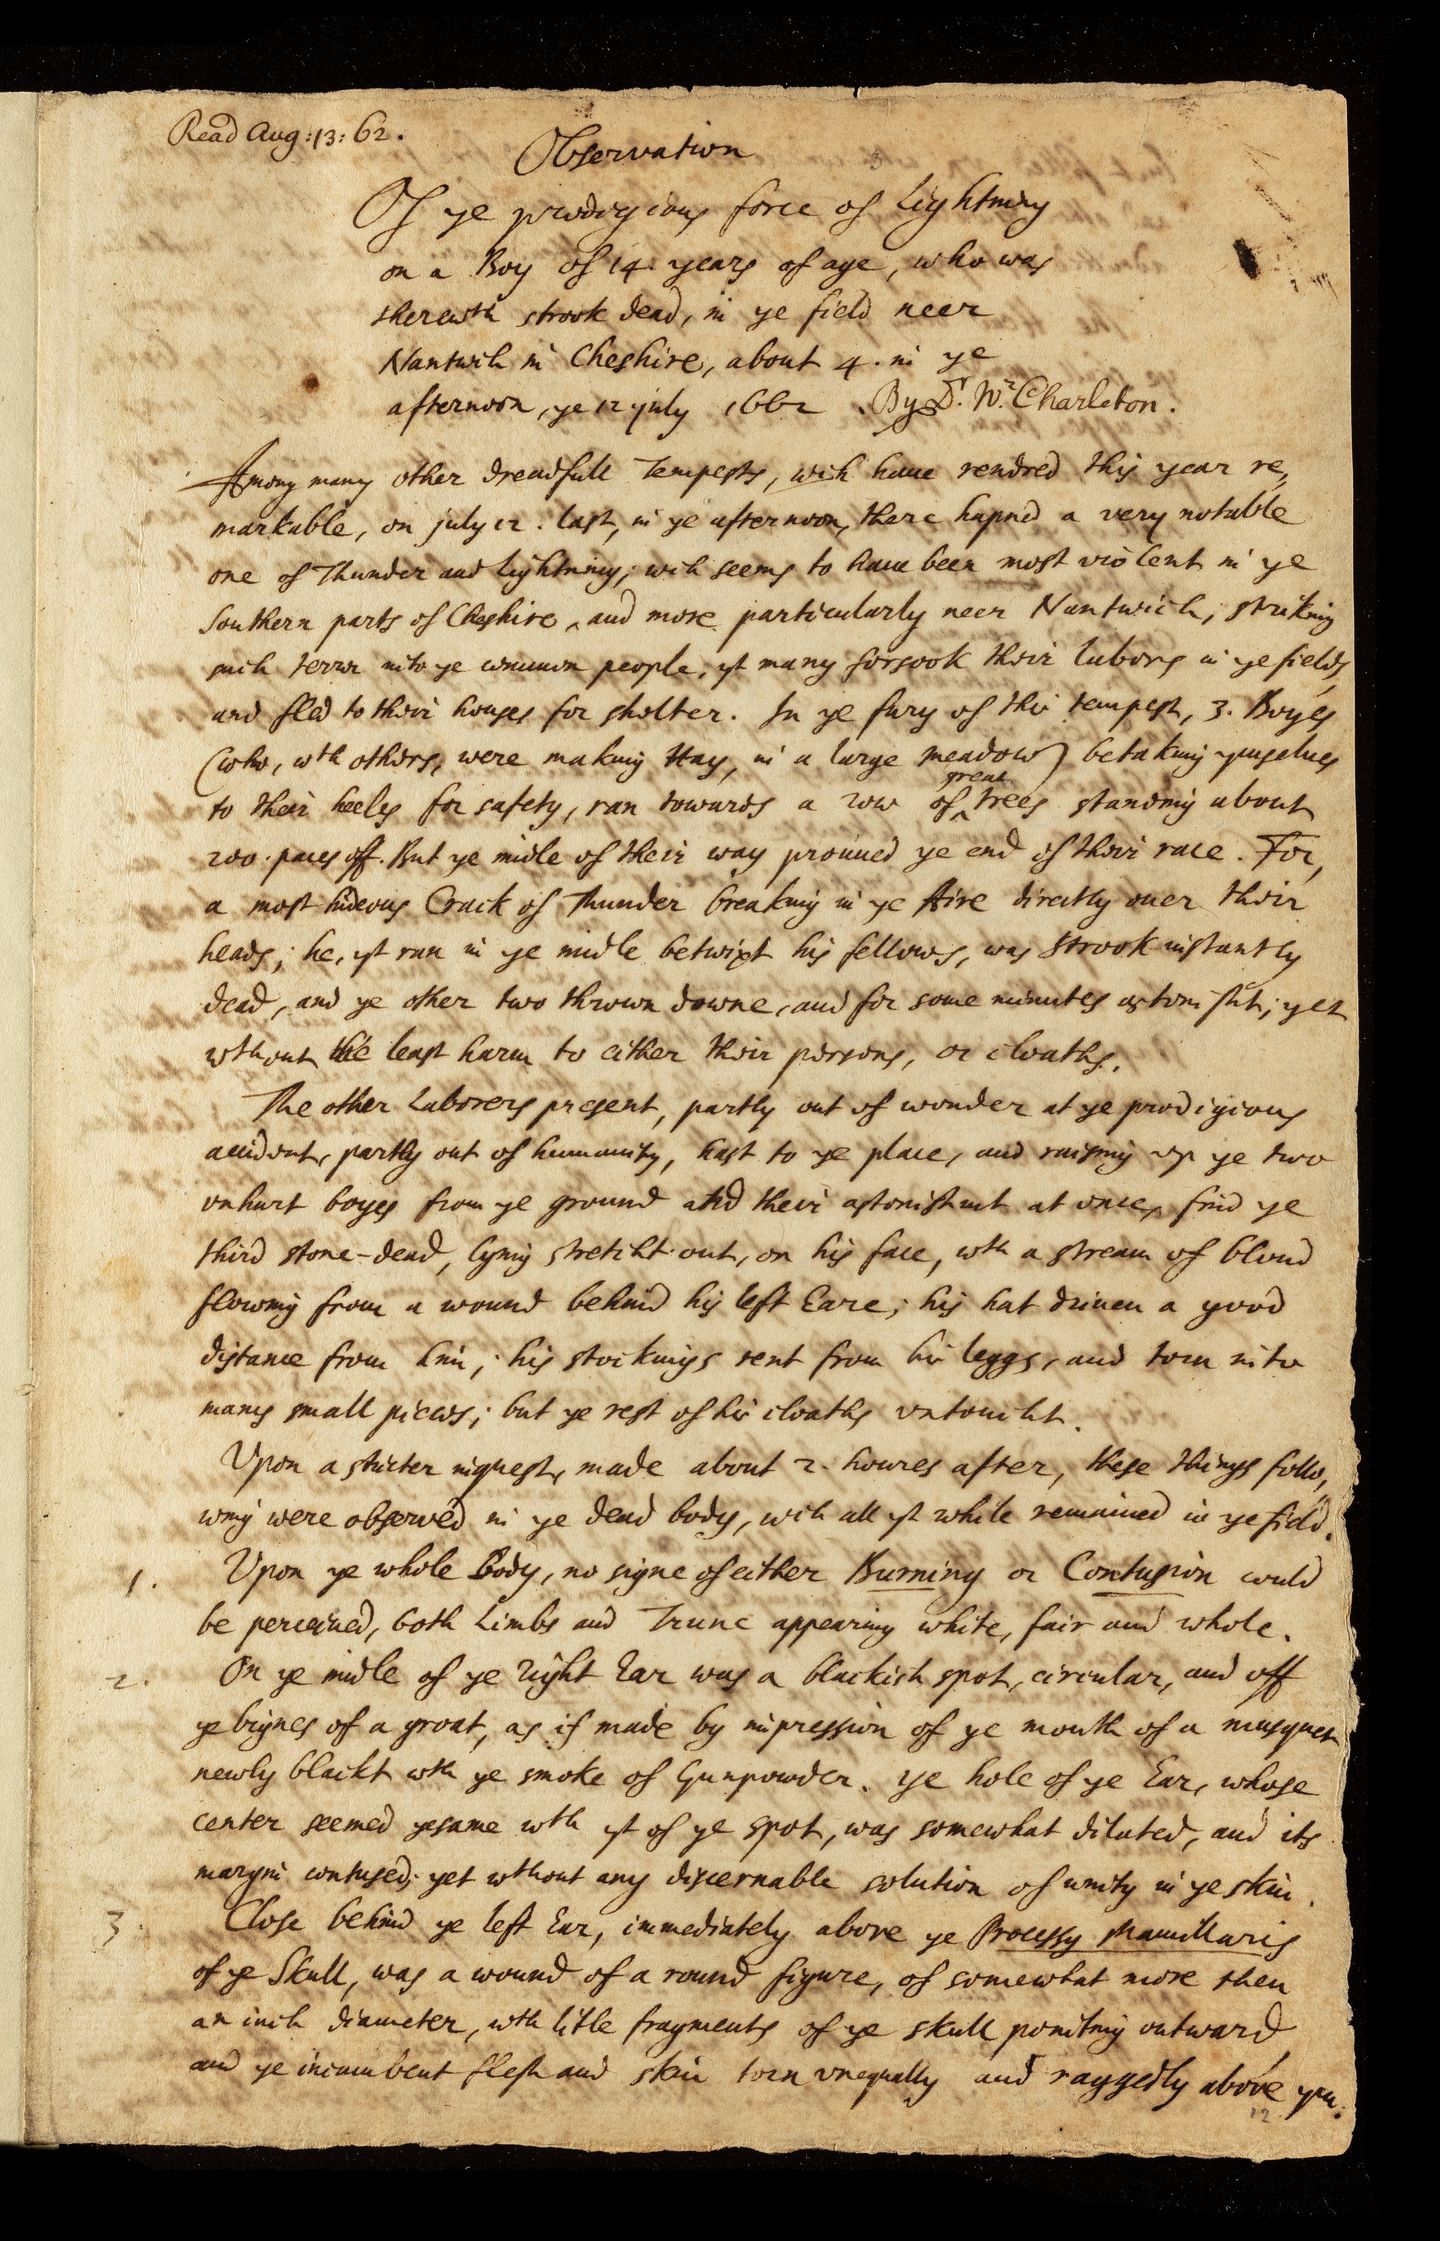 Read Aug: 13: 62.
Observation
Of ye prodigious force of Lightning
on a Boy of 14. years of age, who was
therewth strook dead, in ye field neer
Nantwich in Cheshire, about 4. in ye
afternoon, ye 12 july 1662. By Dr. Wr. Charleton.
Among many other dreadfull Tempests, wich haue rendred this year re,
markable, on july 12. last, in ye afternoon, there hapned a very notable
one of Thunder and Lightning; wich seems to haue been most violent in ye
Southern parts of Cheshire, and more particularly neer Nantwich; striking
such terror into ye common people, yt many forsook their labors in ye fields,
and fled to their houses for shelter. In ye fury of this tempest, 3. Boyes
(who, wth others, were making Hay, in a large meadow) betaking ymselues
to their heeles for safety, ran towards a row of great trees standing about
200. paces off. But ye midle of their way proued ye end of their race. For,
a most hideous Crack of Thunder breaking in ye Aire directly ouer their
heads; he, yt ran in ye midle betwixt his fellows, was strook instantly
dead, and ye other two thrown downe, and for some minutes astonisht; yet
wthout the least harm to either their persons, or cloaths.
The other Laborers present, partly out of wonder at ye prodigious
accident, partly out of humanity, hast to ye place, and raising vp ye two
vnhurt boyes from ye ground and their astonishmt at once, find ye
third stone-dead, lying stretcht out, on his face, wth a stream of bloud
flowing from a wound behind his left Eare; his hat driuen a good
distance from him; his stockings rent from his leggs, and torn into
many small pieces; but ye rest of his cloaths vntoucht.
Upon a stricter inquest, made about 2. houres after, these things follo,
wing were observed in ye dead body, wich all yt while remained in ye field.
1. Upon ye whole Body, no signe of either Burning or Contusion could
be perceiued, both Limbs and Trunc appearing white, fair and whole.
2. On ye midle of ye right Ear was a blackish spot, circular, and off
ye bignes of a groat, as if made by impression of ye mouth of a musquet
newly blackt wth ye smoke of Gunpowder. ye hole of ye Ear, whose
center seemed ye same wth yt of ye spot, was somewhat dilated, and its
margin contused; yet wthout any discernable solution of unity in ye skin.
3. Close behind ye left Ear, immediately above ye Processus Mamillaris
of ye Skull, was a wound of a round figure, of somewhat more then
an inch diameter, wth litle fragments of ye skull pointing outward,
and ye incumbent flesh and skin torn vnequally and raggedly above ym:
12